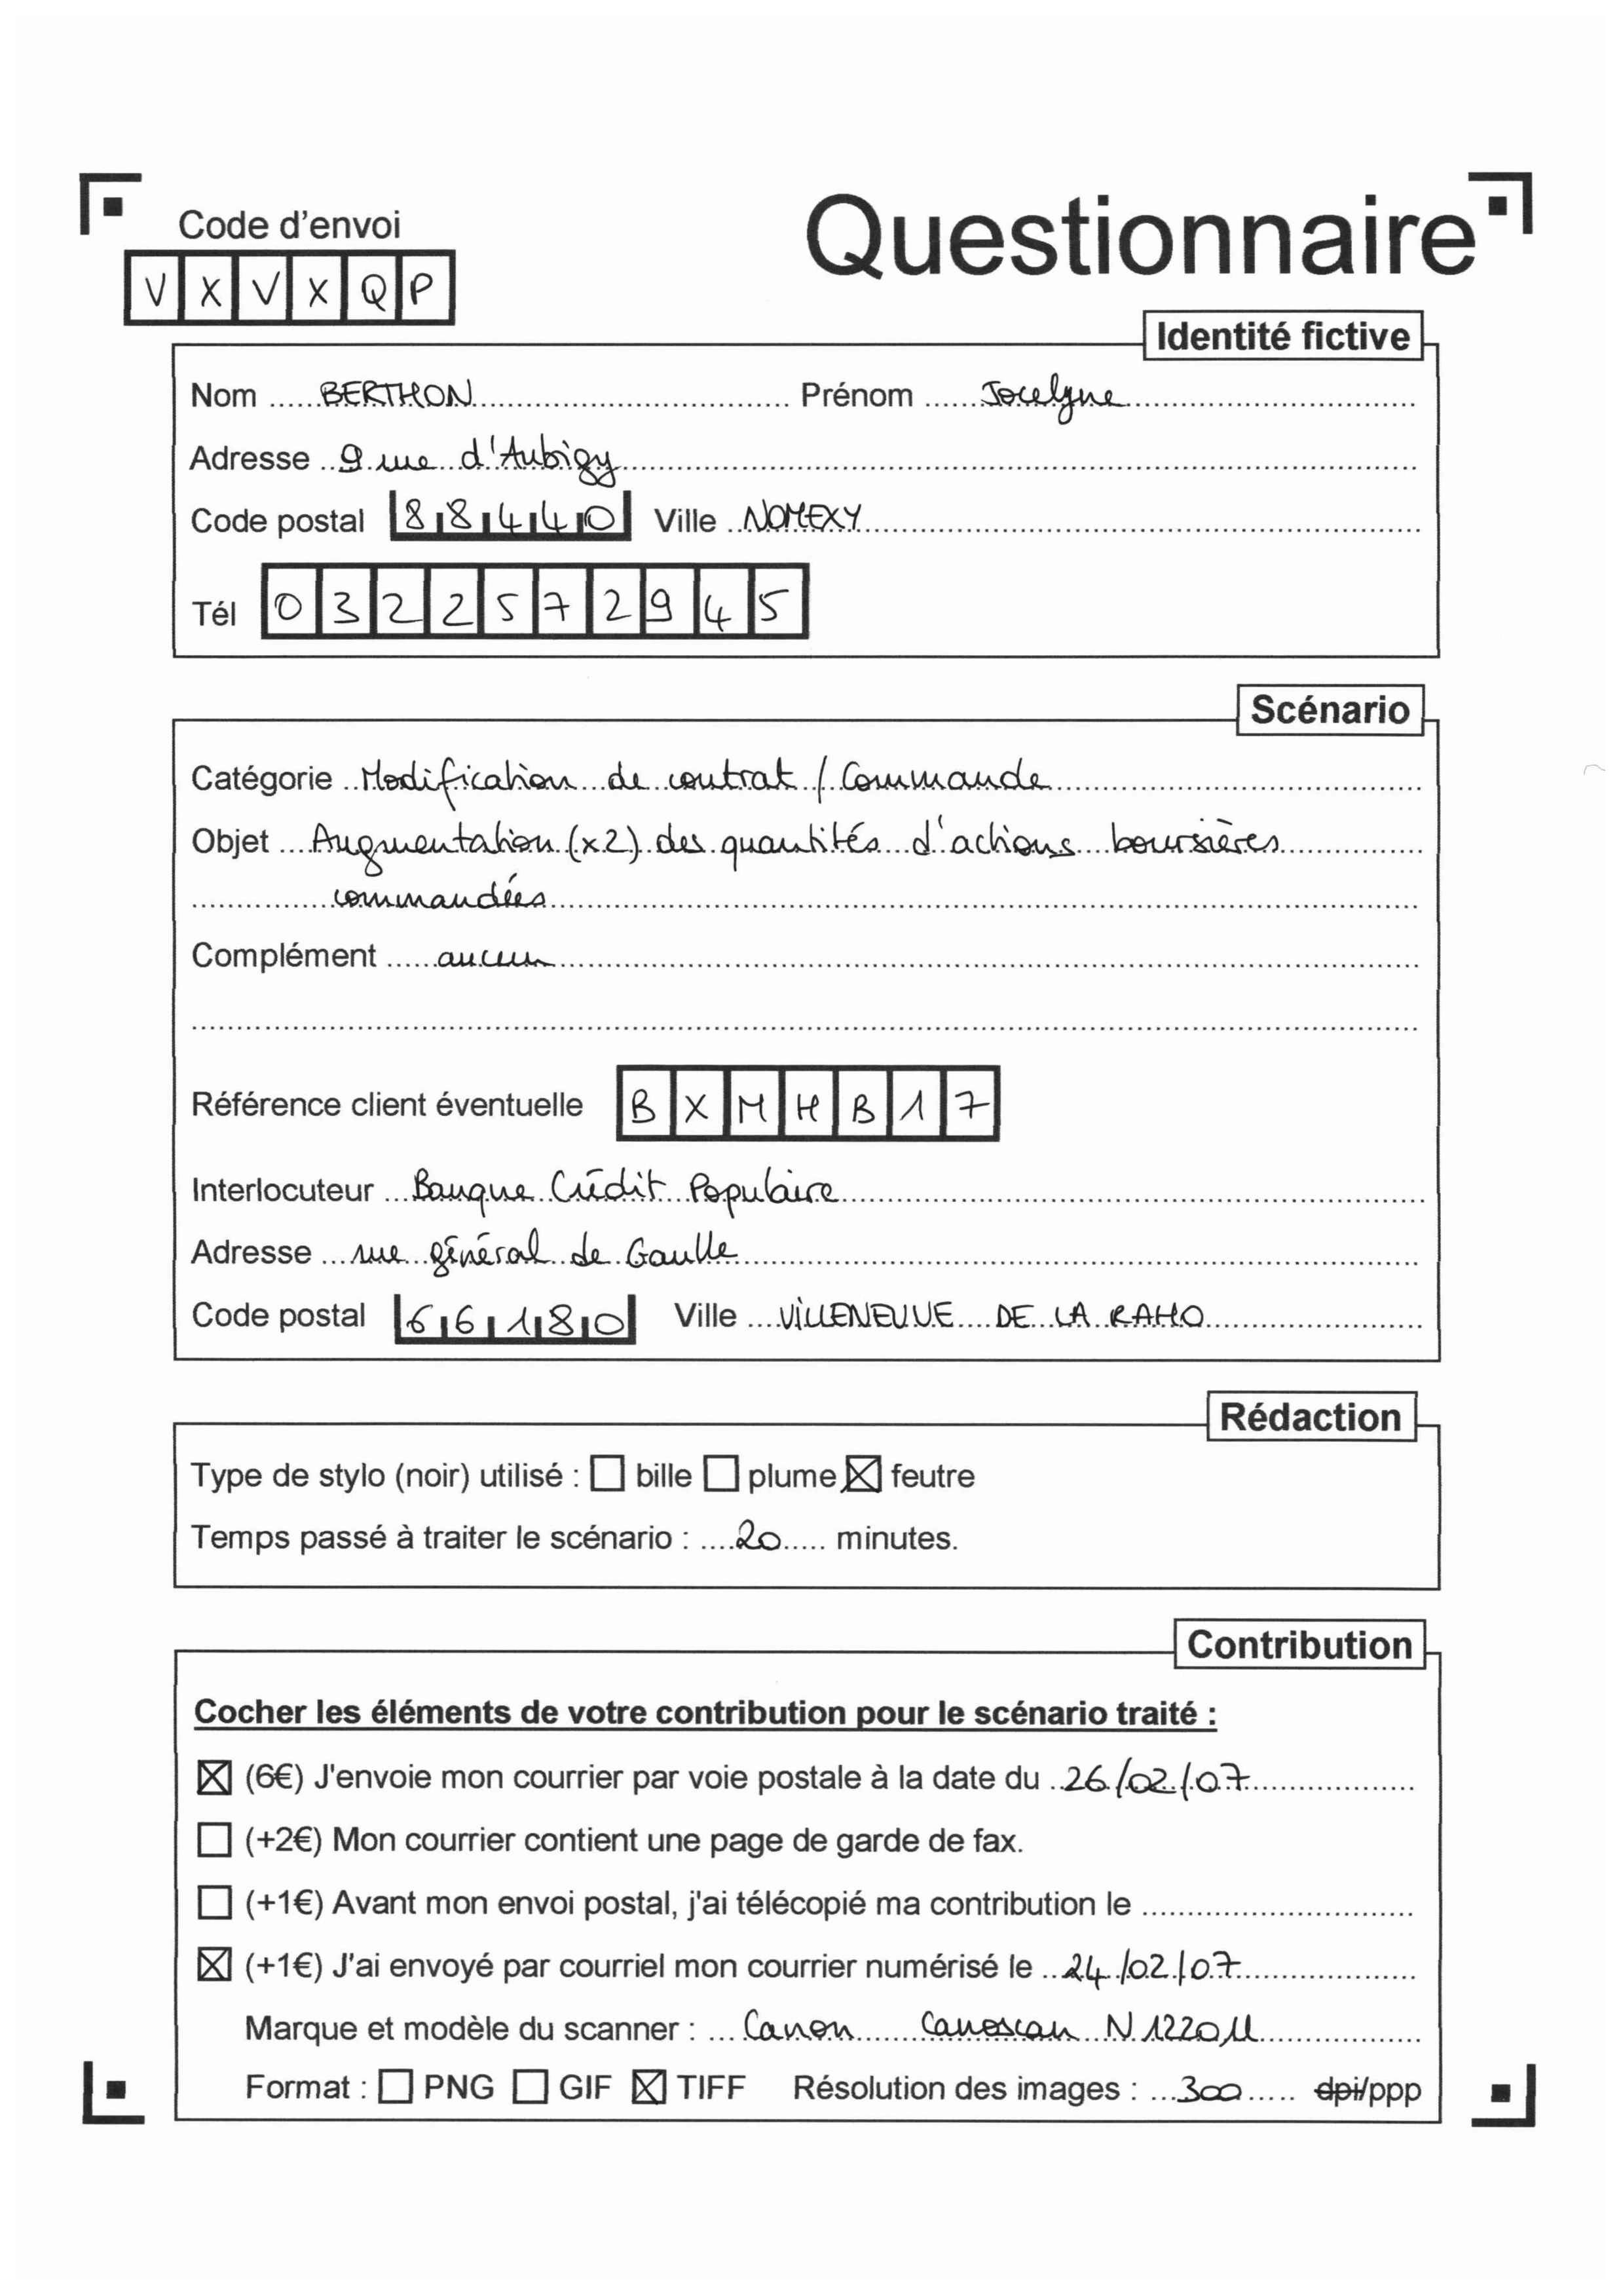 Questionnaire
Code d'envoi
V X V X Q P
Identité fictive
Nom ...... BERTHON ...... Prénom ...... Jocelyne
Adresse .. 9 rue d'Aubigy
Code postal 8 8 4 4 0 Ville .. NOMEXY
Tél 0 3 2 2 5 7 2 9 4 5
Scénario
Catégorie .. Modification de contrat / Commande
Objet .... Augmentation (x2) des quantités d'actions boursières
commandées
Complément ...... aucun
Référence client éventuelle B X M H B 1 7
Interlocuteur ... Banque Crédit Populaire
Adresse .... rue général de Gaulle
Code postal 6 6 1 8 0 Ville .... VILLENEUVE DE LA RAHO
Rédaction
Type de stylo (noir) utilisé : ☐ bille ☐ plume ☒ feutre
Temps passé à traiter le scénario : .... 20 ..... minutes.
Contribution
Cocher les éléments de votre contribution pour le scénario traité :
☒ (6€) J'envoie mon courrier par voie postale à la date du .. 26/02/07
☐ (+2€) Mon courrier contient une page de garde de fax.
☐ (+1€) Avant mon envoi postal, j'ai télécopié ma contribution le ..........................
☒ (+1€) J'ai envoyé par courriel mon courrier numérisé le .. 24/02/07
Marque et modèle du scanner : ... Canon Canoscan N1220U
Format : ☐ PNG ☐ GIF ☒ TIFF Résolution des images : ... 300 ..... dpi/ppp